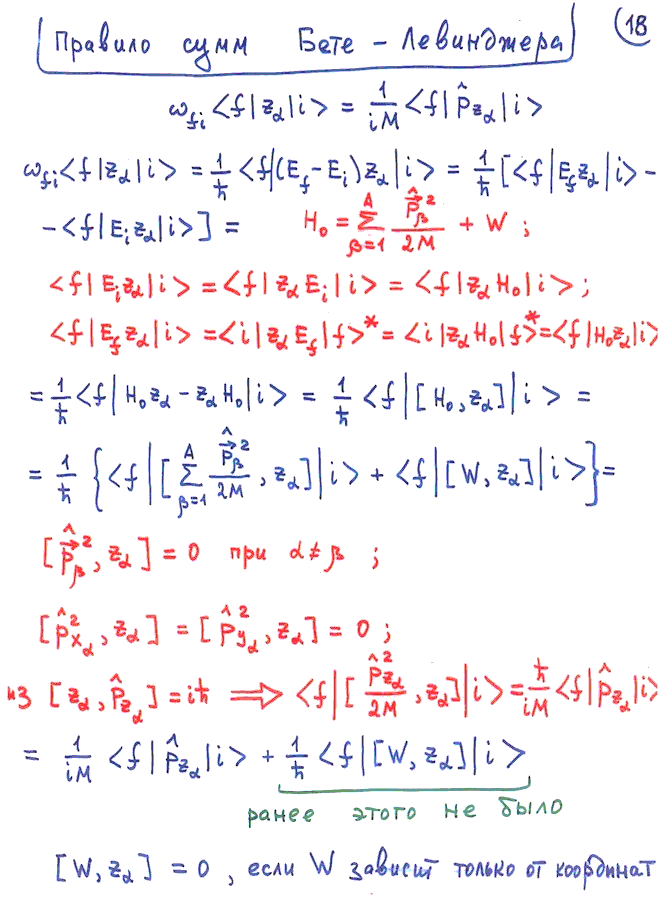 Правило сумм Бете – Левинджера
18
ω_{fi}<f|z_α|i> = \frac{1}{iM}<f|\hat{p}_{z_α}|i>
ω_{fi}<f|z_α|i> = \frac{1}{ħ}<f|(E_f – E_i)z_α|i> = \frac{1}{ħ}[<f|E_f z_α|i> –
– <f|E_i z_α|i>] = H_0 = \sum_{β=1}^{A} \frac{\hat{\vec{p}}_β^2}{2M} + W ;
<f|E_i z_α|i> = <f|z_α E_i|i> = <f|z_α H_0|i> ;
<f|E_f z_α|i> = <i|z_α E_f|f>^* = <i|z_α H_0|f>^* = <f|H_0 z_α|i>
= \frac{1}{ħ}<f|H_0 z_α – z_α H_0|i> = \frac{1}{ħ}<f|[H_0, z_α]|i> =
= \frac{1}{ħ}{<f|[\sum_{β=1}^{A} \frac{\hat{\vec{p}}_β^2}{2M}, z_α]|i> + <f|[W, z_α]|i>} =
[\hat{\vec{p}}_β^2, z_α] = 0 при α ≠ β ;
[\hat{p}_{x_α}^2, z_α] = [\hat{p}_{y_α}^2, z_α] = 0 ;
из [z_α, \hat{p}_{z_α}] = iħ ⟹ <f|[\frac{\hat{p}_{z_α}^2}{2M}, z_α]|i> = \frac{ħ}{iM}<f|\hat{p}_{z_α}|i>
= \frac{1}{iM}<f|\hat{p}_{z_α}|i> + \frac{1}{ħ}<f|[W, z_α]|i>
ранее этого не было
[W, z_α] = 0 , если W зависит только от координат